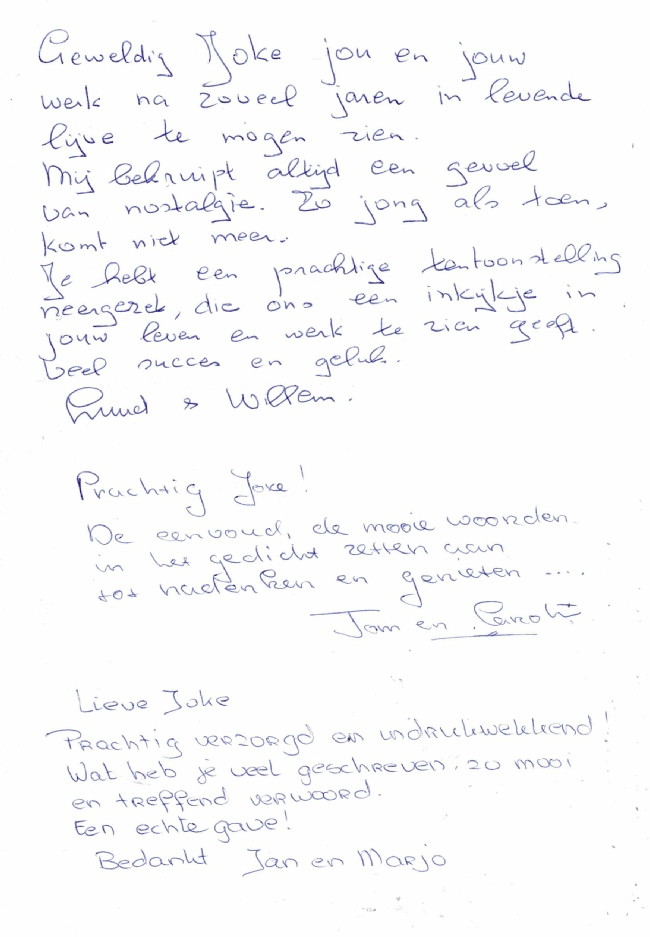 Geweldig Joke jou en jouw
werk na zoveel jaren in levende
lijve te mogen zien.
Mij bekruipt altijd een gevoel
van nostalgie. Zo jong als toen,
komt niet meer.
Je hebt een prachtige tentoonstelling
neergezet, die ons een inkijkje in
jouw leven en werk te zien geeft.
Veel succes en geluk.
Ruud & Willem.
Prachtig Joke!
De eenvoud, de mooie woorden
in het gedicht zetten aan
tot nadenken en genieten ....
Tom en
Lieve Joke
Prachtig verzorgd en indrukwekkend!
Wat heb je veel geschreven. zo mooi
en treffend verwoord.
Een echte gave!
Bedankt Jan en Marjo